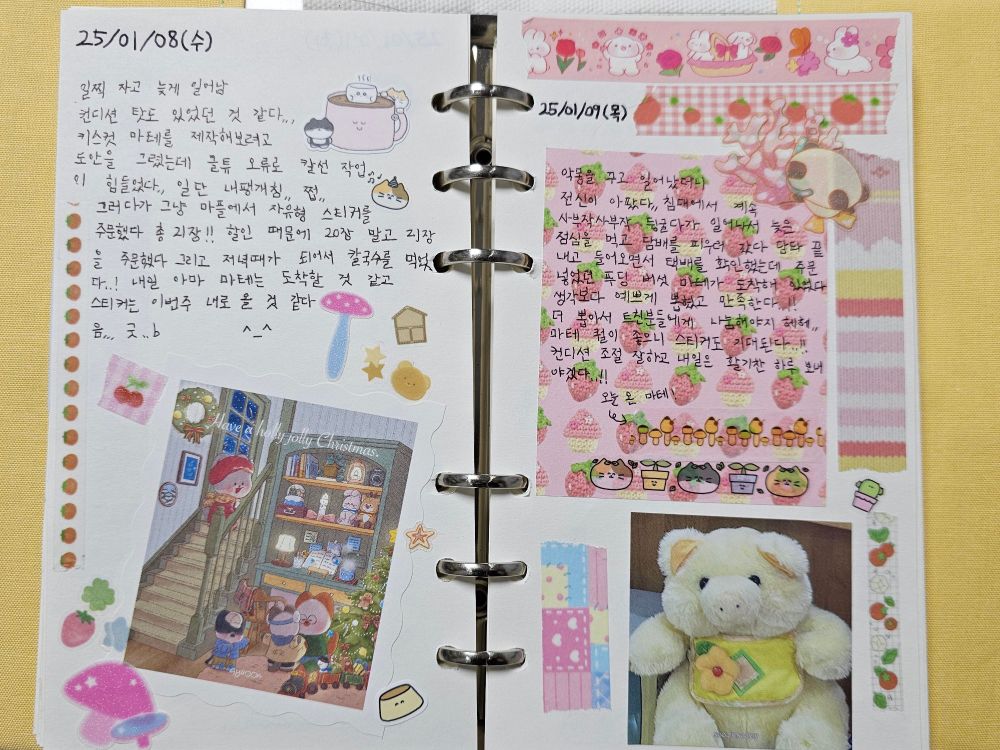 25/01/08(수)
일찍 자고 늦게 일어남
컨디션 탓도 있었던 것 같다,,,
키스컷 마테를 제작해보려고
도안을 그렸는데 클튜 오류로 칼선 작업
이 힘들었다,, 일단 내팽개침,, 쩝,,
그러다가 그냥 마플에서 자유형 스티커를
주문했다 총 21장!! 할인 때문에 20장 말고 21장
을 주문했다 그리고 저녁때가 되어서 칼국수를 먹었
다..! 내일 아마 마테는 도착할 것 같고
스티커는 이번주 내로 올 것 같다
음,,, 굿..b ^_^
Have a holly jolly Christmas.
25/01/09(목)
악몽을 꾸고 일어났더니
전신이 아팠다,, 침대에서 계속
사부작사부작 뒹굴다가 일어나서 늦은
점심을 먹고 담배를 피우러 갔다 담타 끝
내고 들어오면서 택배를 확인했는데 주문
넣었던 푸딩 버섯 마테가 도착해 있었다
생각보다 예쁘게 뽑혔고 만족한다..!!
더 뽑아서 트친분들에게 나눔해야지 헤헤,,
마테 퀄이 좋으니 스티커도 기대된다..!!
컨디션 조절 잘하고 내일은 활기찬 하루 보내
야겠다..!!
오늘 온 마테!